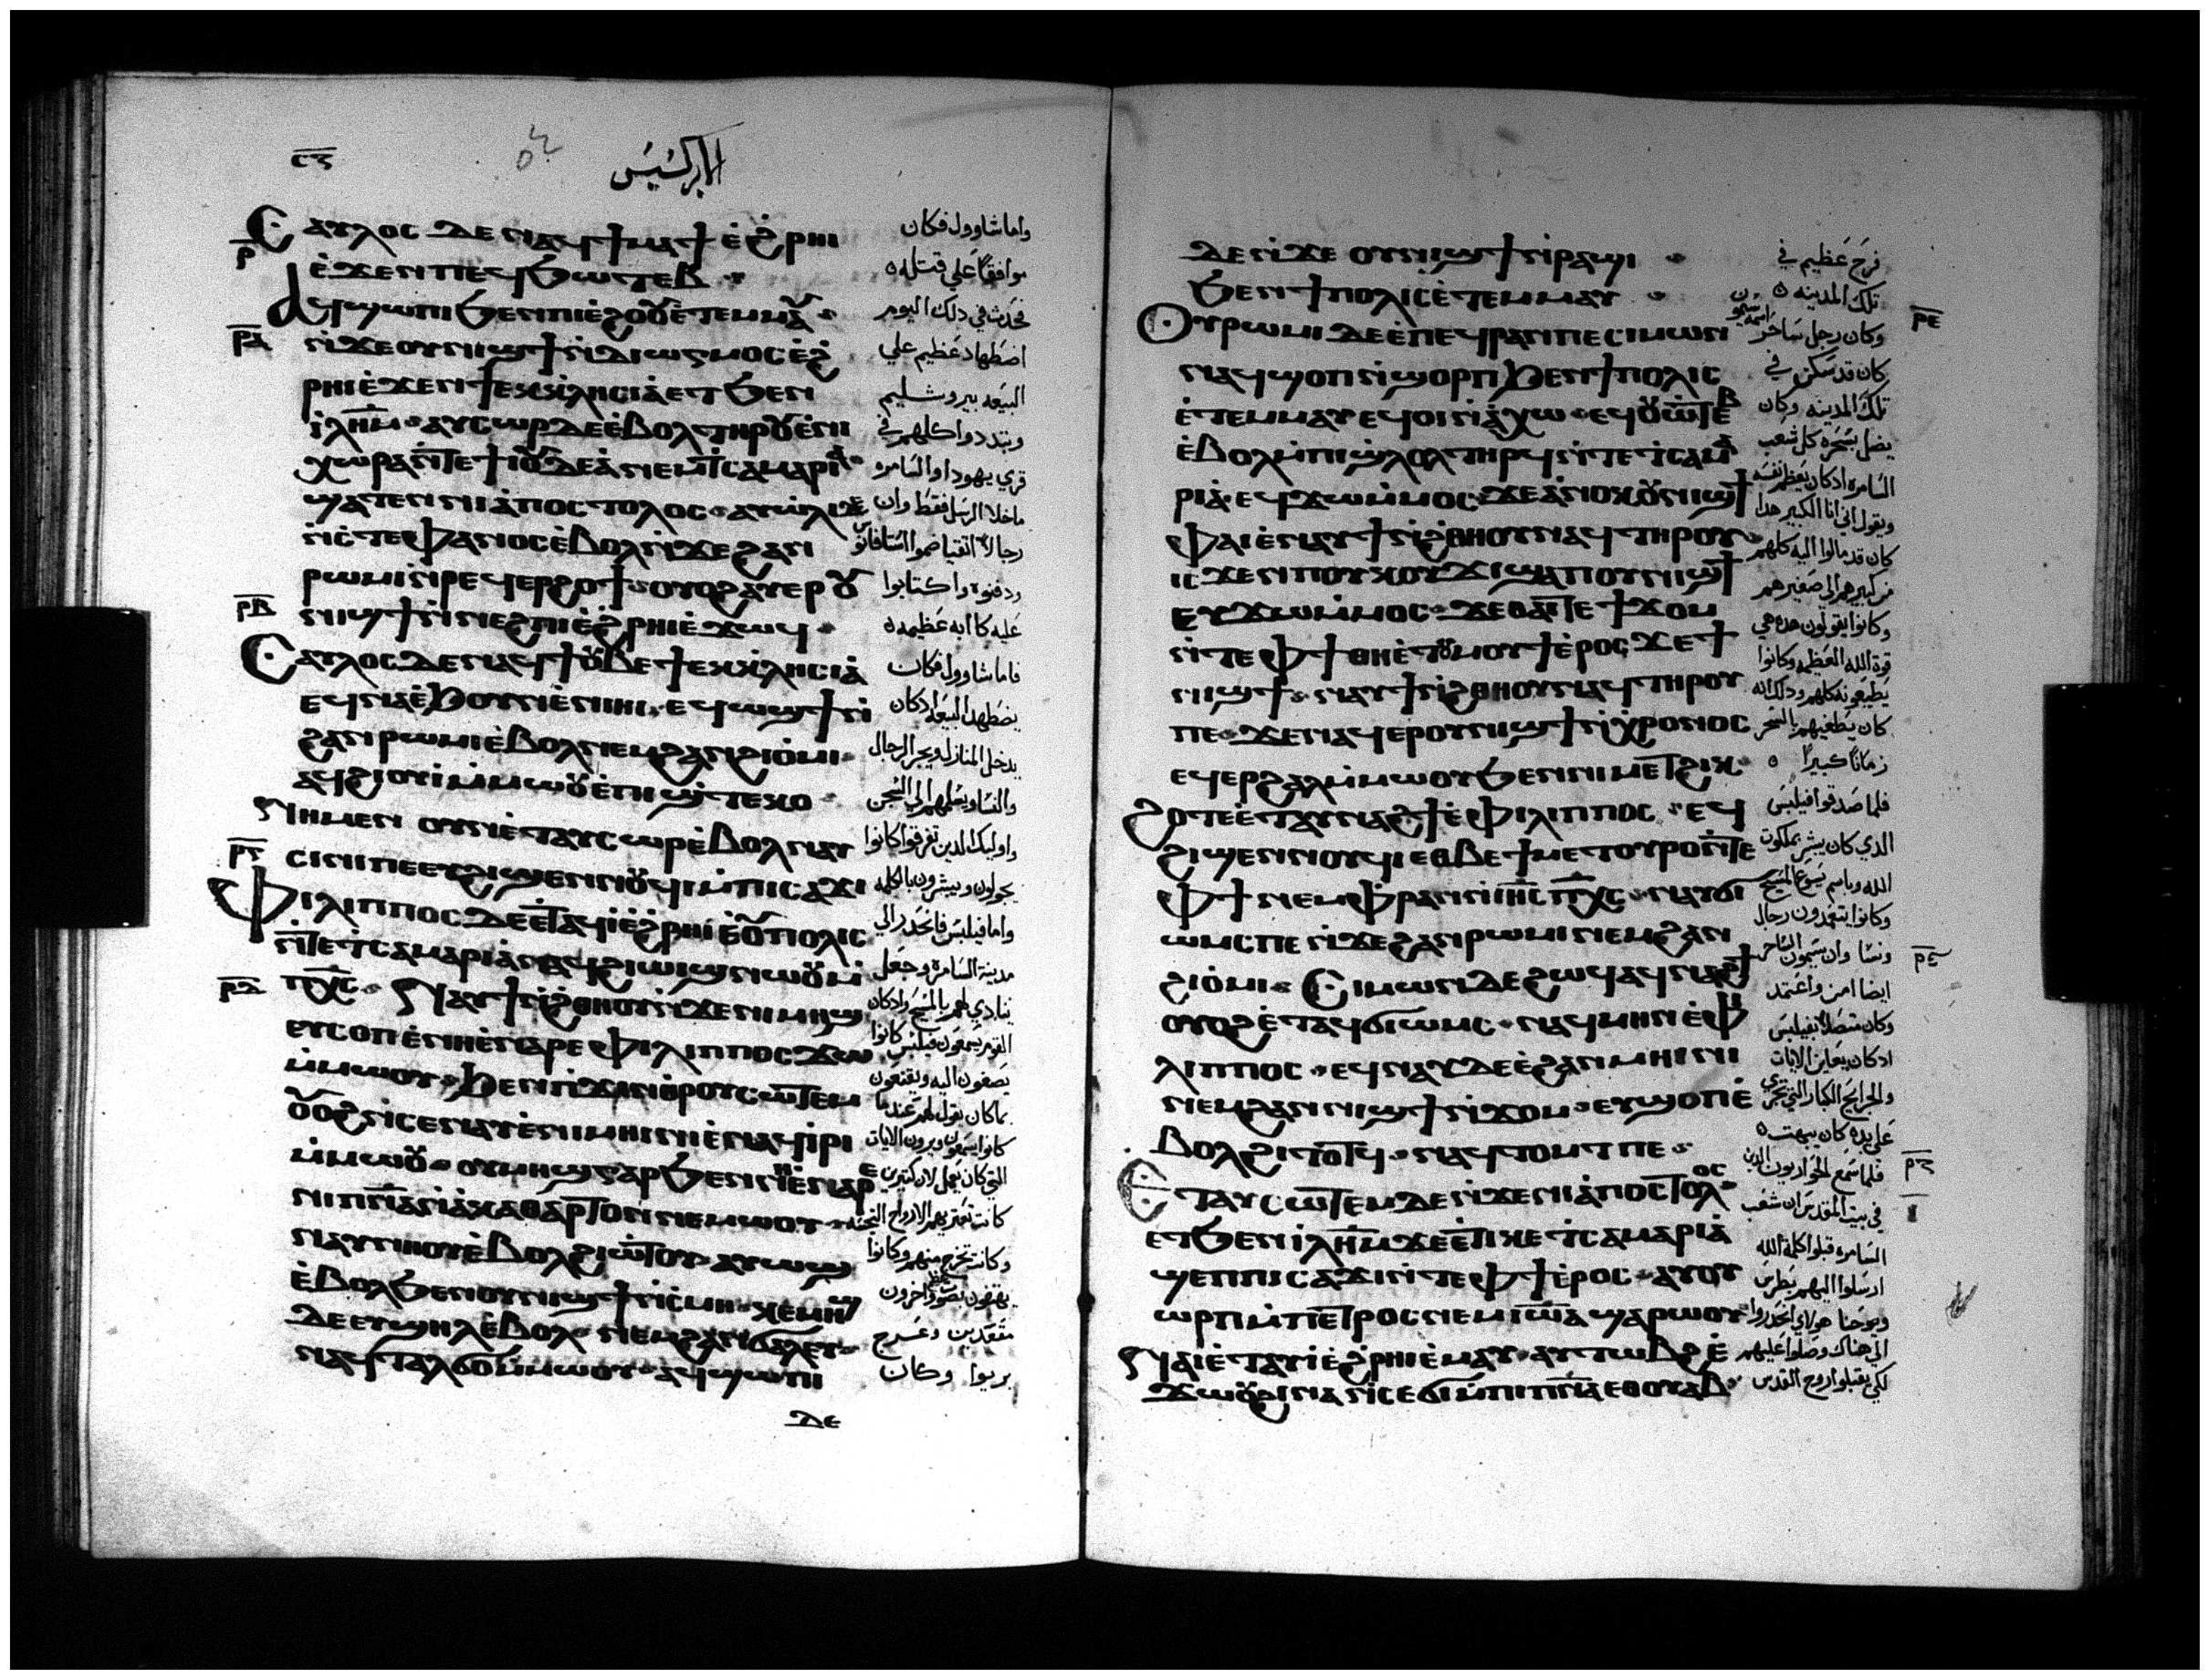 ⲥ̅ⲍ̅
الابركسيس
Ⲥⲁⲩⲗⲟⲥ ⲇⲉ ⲛⲁϥϯⲙⲁϯ ⲉ̀ϩ̀ⲣⲏⲓ
ⲉ̀ϫⲉⲛ ⲡⲉϥϧⲱⲧⲉⲃ
Ⲁϥϣⲱⲡⲓ ϧⲉⲛ ⲡⲓⲉ̀ϩⲟⲟⲩ ⲉ̀ⲧⲉⲙⲙⲁⲩ
ⲛ̀ϫⲉ ⲟⲩⲛⲓϣϯ ⲛ̀ⲇⲓⲱⲅⲙⲟⲥ ⲉ̀ϩ̀
ⲣⲏⲓ ⲉ̀ϫⲉⲛ ϯⲉⲕⲕⲗⲏⲥⲓⲁ̀ ⲉⲧ ϧⲉⲛ
ⲓ̀ⲗ̅ⲏ̅ⲙ̅ ⲁⲩⲥⲱⲣ ⲇⲉ ⲉ̀ⲃⲟⲗ ⲧⲏⲣⲟⲩ ⲉ̀ⲛⲓ
ⲭⲱⲣⲁ ⲛ̀ⲧⲉ ϯⲓⲟⲩⲇⲉⲁ̀ ⲛⲉⲙ ⲧⲥⲁⲙⲁⲣⲓⲁ̀
ϣⲁⲧⲉⲛ ⲛⲓⲁ̀ⲡⲟⲥⲧⲟⲗⲟⲥ
ⲛ̀ⲥⲧⲉⲫⲁⲛⲟⲥ ⲉ̀ⲃⲟⲗ ⲛ̀ϫⲉ ϩⲁⲛ
ⲣⲱⲙⲓ ⲛ̀ⲣⲉϥⲉⲣϩⲟϯ ⲟⲩⲟϩ ⲁⲩⲉⲣ ⲟⲩ
ⲛⲓϣϯ ⲛ̀ⲛⲉϩⲡⲓ ⲉ̀ϩ̀ⲣⲏⲓ ⲉ̀ϫⲱϥ
Ⲥⲁⲩⲗⲟⲥ ⲇⲉ ⲛⲁϥϯ ⲟⲩⲃⲉ ϯⲉⲕⲕⲗⲏⲥⲓⲁ̀
ⲉϥⲛⲁ ⲉ̀ϧⲟⲩⲛ ⲉ̀ⲛⲓⲏⲓ ⲉϥⲱϣϯ ⲛ̀
ϩⲁⲛⲣⲱⲙⲓ ⲉ̀ⲃⲟⲗ ⲛⲉⲙ ϩⲁⲛϩⲓⲟ̀ⲙⲓ
ⲁϥϩⲓⲟⲩⲓ̀ ⲙ̀ⲙⲱⲟⲩ ⲉ̀ⲡⲓϣⲧⲉⲕⲟ
Ⲛⲏ ⲙⲉⲛ ⲟⲩⲛ ⲉ̀ⲧⲁⲩⲥⲱⲣ ⲉ̀ⲃⲟⲗ ⲛⲁⲩ
ⲥⲓⲛⲓ ⲡⲉ ⲉⲩϩⲓϣⲉⲛⲛⲟⲩϥⲓ ⲙ̀ⲡⲓⲥⲁϫⲓ
Ⲫⲓⲗⲓⲡⲡⲟⲥ ⲇⲉ ⲉ̀ⲧⲁϥⲓ̀ ⲉ̀ϩ̀ⲣⲏⲓ ⲉ̀ⲟⲩⲡⲟⲗⲓⲥ
ⲛ̀ⲧⲉ ⲧⲥⲁⲙⲁⲣⲓⲁ̀ ⲛⲁϥϩⲓⲱⲓϣ ⲛⲱⲟⲩ ⲙ̀
ⲡⲭ̅ⲥ̅ Ⲛⲁⲩϯ ⲛ̀ϩ̀ⲑⲏⲟⲩ ⲛ̀ϫⲉ ⲛⲓⲙⲏϣ
ⲉⲩⲥⲟⲡ ⲉ̀ⲛⲏ ⲉ̀ⲛⲁⲣⲉ ⲫⲓⲗⲓⲡⲡⲟⲥ ϫⲱ
ⲙ̀ⲙⲱⲟⲩ ϧⲉⲛ ⲡϫⲓⲛⲑⲣⲟⲩⲥⲱⲧⲉⲙ
ⲟⲩⲟϩ ⲛ̀ⲥⲉⲛⲁⲩ ⲉ̀ⲛⲓⲙⲏⲓⲛⲓ ⲉ̀ⲛⲁϥⲓ̀ⲣⲓ
ⲙ̀ⲙⲱⲟⲩ ⲟⲩⲙⲏϣ ⲅⲁⲣ ϧⲉⲛ ⲛⲏ ⲉ̀ⲛⲁⲣⲉ
ⲛⲓⲡ̅ⲛ̅ⲁ̅ ⲛ̀ⲁ̀ⲕⲁⲑⲁⲣⲧⲟⲛ ⲛⲉⲙⲱⲟⲩ
ⲛⲁⲩⲛⲏⲟⲩ ⲉ̀ⲃⲟⲗ ϩⲓⲱⲧⲟⲩ ⲁⲩⲱϣ
ⲉ̀ⲃⲟⲗ ϧⲉⲛ ⲟⲩⲛⲓϣϯ ⲛ̀ⲥ̀ⲙⲏ ⲕⲉⲙⲏϣ
ⲇⲉ ⲉⲩϣⲏⲗ ⲉ̀ⲃⲟⲗ ⲛⲉⲙ ϩⲁⲛϭⲁⲗⲉⲩ
ⲛⲁϥⲧⲁⲗϭⲟ ⲙ̀ⲙⲱⲟⲩ ⲁϥϣⲱⲡⲓ
ⲇⲉ
ⲣ̅
ⲣ̅ⲁ̅
ⲣ̅ⲃ̅
ⲣ̅ⲅ̅
ⲣ̅ⲇ̅
واما شاوول فكان
موافقا علي قتله
فحدث في ذلك اليوم
اضطهاد عظيم علي
البيعه بيروشليم
وتبددوا كلهم في
قري يهودا والسامره
ماخلا الرسل فقط وان
رجالا اتقيا ضموا استافانوس
ودفنوه واكتابوا
عليه كاابه عظيمه
فاما شاوول فكان
يضطهد البيعه اذ كان
يدخل المنازل ويجر الرجال
والنسا ويسلمهم الي السجن
واوليك الذين تفرقوا كانوا
يجولون ويبشرون بالكلمه
واما فيلبس فانحدر الي
مدينة السامره وجعل
ينادي لهم بالمسيح واذ كان
القوم يسمعون فيلبس كانوا
يصغون اليه ويقنعون
بما كان يقول لهم عندما
كانوا يسمعون ويرون الايات
التي كان يعمل لان كتيرين
كانت تعتريهم الارواح النجسه
وكانت تخرج منهم وكانوا
يهتفون بصوت عظيم واخرون
مقعدين وعرج
بريوا وكان
ⲇⲉ ⲛ̀ϫⲉ ⲟⲩⲛⲓϣϯ ⲛ̀ⲣⲁϣⲓ
ϧⲉⲛ ϯⲡⲟⲗⲓⲥ ⲉ̀ⲧⲉⲙⲙⲁⲩ
Ⲟⲩⲣⲱⲙⲓ ⲇⲉ ⲉ̀ⲡⲉϥⲣⲁⲛ ⲡⲉ ⲥⲓⲙⲱⲛ
ⲛⲁϥϣⲟⲡ ⲛ̀ϣⲟⲣⲡ ϧⲉⲛ ϯⲡⲟⲗⲓⲥ
ⲉ̀ⲧⲉⲙⲙⲁⲩ ⲉϥⲟⲓ ⲛ̀ⲁ̀ⲭⲱ ⲉϥⲟⲩⲱⲧⲉⲃ
ⲉ̀ⲃⲟⲗ ⲙ̀ⲡⲓϣ̀ⲗⲟⲗ ⲧⲏⲣϥ ⲛ̀ⲧⲉ ⲧⲥⲁⲙⲁ
ⲣⲓⲁ̀ ⲉϥϫⲱ ⲙ̀ⲙⲟⲥ ϫⲉ ⲁ̀ⲛⲟⲕ ⲟⲩⲛⲓϣϯ
ⲫⲁⲓ ⲉ̀ⲛⲁⲩϯ ⲛ̀ϩ̀ⲑⲏⲟⲩ ⲛⲁϥ ⲧⲏⲣⲟⲩ
ⲓⲥϫⲉⲛ ⲡⲟⲩⲕⲟⲩϫⲓ ϣⲁ ⲡⲟⲩⲛⲓϣϯ
ⲉⲩϫⲱ ⲙ̀ⲙⲟⲥ ϫⲉ ⲑⲁⲓ ⲧⲉ ϯϫⲟⲙ
ⲛ̀ⲧⲉ ⲫϯ ⲑⲏ ⲉ̀ⲧⲟⲩⲙⲟⲩϯ ⲉ̀ⲣⲟⲥ ϫⲉ ϯ
ⲛⲓϣϯ ⲛⲁⲩϯ ⲛ̀ϩ̀ⲑⲏⲟⲩ ⲛⲁϥ ⲧⲏⲣⲟⲩ
ⲡⲉ ϫⲉ ⲛⲁϥⲉⲣ ⲟⲩⲛⲓϣϯ ⲛ̀ⲭⲣⲟⲛⲟⲥ
ⲉϥⲉⲣϩⲁⲗ ⲙ̀ⲙⲱⲟⲩ ϧⲉⲛ ⲛⲓⲙⲉⲧϩⲓⲕ
Ϩⲟⲧⲉ ⲉ̀ⲧⲁⲩⲛⲁϩϯ ⲉ̀ⲫⲓⲗⲓⲡⲡⲟⲥ ⲉϥ
ϩⲓϣⲉⲛⲛⲟⲩϥⲓ ⲉⲑⲃⲉ ϯⲙⲉⲧⲟⲩⲣⲟ ⲛ̀ⲧⲉ
ⲫϯ ⲛⲉⲙ ⲫⲣⲁⲛ ⲛ̀ⲓⲏ̅ⲥ̅ ⲡⲭ̅ⲥ̅ ⲛⲁⲩϭⲓ
ⲱⲙⲥ ⲡⲉ ⲛ̀ϫⲉ ϩⲁⲛⲣⲱⲙⲓ ⲛⲉⲙ ϩⲁⲛ
ϩⲓⲟ̀ⲙⲓ Ⲥⲓⲙⲱⲛ ⲇⲉ ϩⲱϥ ⲁϥⲛⲁϩϯ
ⲟⲩⲟϩ ⲉ̀ⲧⲁϥϭⲓⲱⲙⲥ ⲛⲁϥⲙⲏⲛ ⲉ̀ⲫⲓ
ⲗⲓⲡⲡⲟⲥ ⲉϥⲛⲁⲩ ⲇⲉ ⲉ̀ϩⲁⲛⲙⲏⲓⲛⲓ
ⲛⲉⲙ ϩⲁⲛⲛⲓϣϯ ⲛ̀ϫⲟⲙ ⲉⲩϣⲟⲡ ⲉ̀
ⲃⲟⲗ ϩⲓⲧⲟⲧϥ ⲛⲁϥⲧⲟⲙⲧ ⲡⲉ
Ⲉⲧⲁⲩⲥⲱⲧⲉⲙ ⲇⲉ ⲛ̀ϫⲉ ⲛⲓⲁ̀ⲡⲟⲥⲧⲟⲗⲟⲥ
ⲉⲧ ϧⲉⲛ ⲓ̀ⲗ̅ⲏ̅ⲙ̅ ϫⲉ ⲉ̀ⲧⲓ ⲕⲉ ⲧⲥⲁⲙⲁⲣⲓⲁ̀
ϣⲉⲡ ⲡⲓⲥⲁϫⲓ ⲛ̀ⲧⲉ ⲫϯ ⲉ̀ⲣⲟⲥ ⲁⲩⲟⲩ
ⲱⲣⲡ ⲙ̀ⲡⲉⲧⲣⲟⲥ ⲛⲉⲙ ⲓⲱ̅ⲁ̅ ϣⲁⲣⲱⲟⲩ
Ⲛⲁⲓ ⲉ̀ⲧⲁⲩⲓ̀ ⲉ̀ϩ̀ⲣⲏⲓ ⲉ̀ⲙⲁⲩ ⲁⲩⲧⲱⲃϩ ⲉ̀
ϫⲱⲟⲩ ϩⲓⲛⲁ ⲛ̀ⲥⲉϭⲓ ⲙ̀ⲡⲓⲡ̅ⲛ̅ⲁ̅ ⲉⲑⲟⲩⲁⲃ
فرح عظيم في
تلك المدينه
وكان رجل ساحر اسمه سيمون
كان قد سكن في
تلك المدينه وكان
يضل بسحره كل شعب
السامره اذ كان يعظم نفسه
ويقول اني انا الكبير هذا
كان قد مالوا اليه كلهم
من كبيرهم الي صغيرهم
وكانوا يقولون هذه هي
قوة الله العظيمه وكانوا
يطيعونه كلهم وذلك انه
كان يطغيهم بالسحر
زمانا كبيرا
فلما صدقوا فيلبس
الذي كان يبشر بملكوت
الله وباسم يسوع المسيح
وكانوا يتعمدون رجال
ونسا وان سيمون الساحر
ايضا امن واعتمد
وكان متصلا بفيلبس
اذ كان يعاين الايات
والجرايح الكبار التي تجري
علي يديه كان يبهت
فلما سمع الحواريون الذين
في بيت المقدس ان شعب
السامره قبلوا كلمة الله
ارسلوا اليهم بطرس
ويوحنا هولاي انحدروا
الي هناك وصلوا عليهم
لكي يقبلوا روح القدس
ⲣ̅ⲉ̅
ⲣ̅ⲋ̅
ⲣ̅ⲍ̅